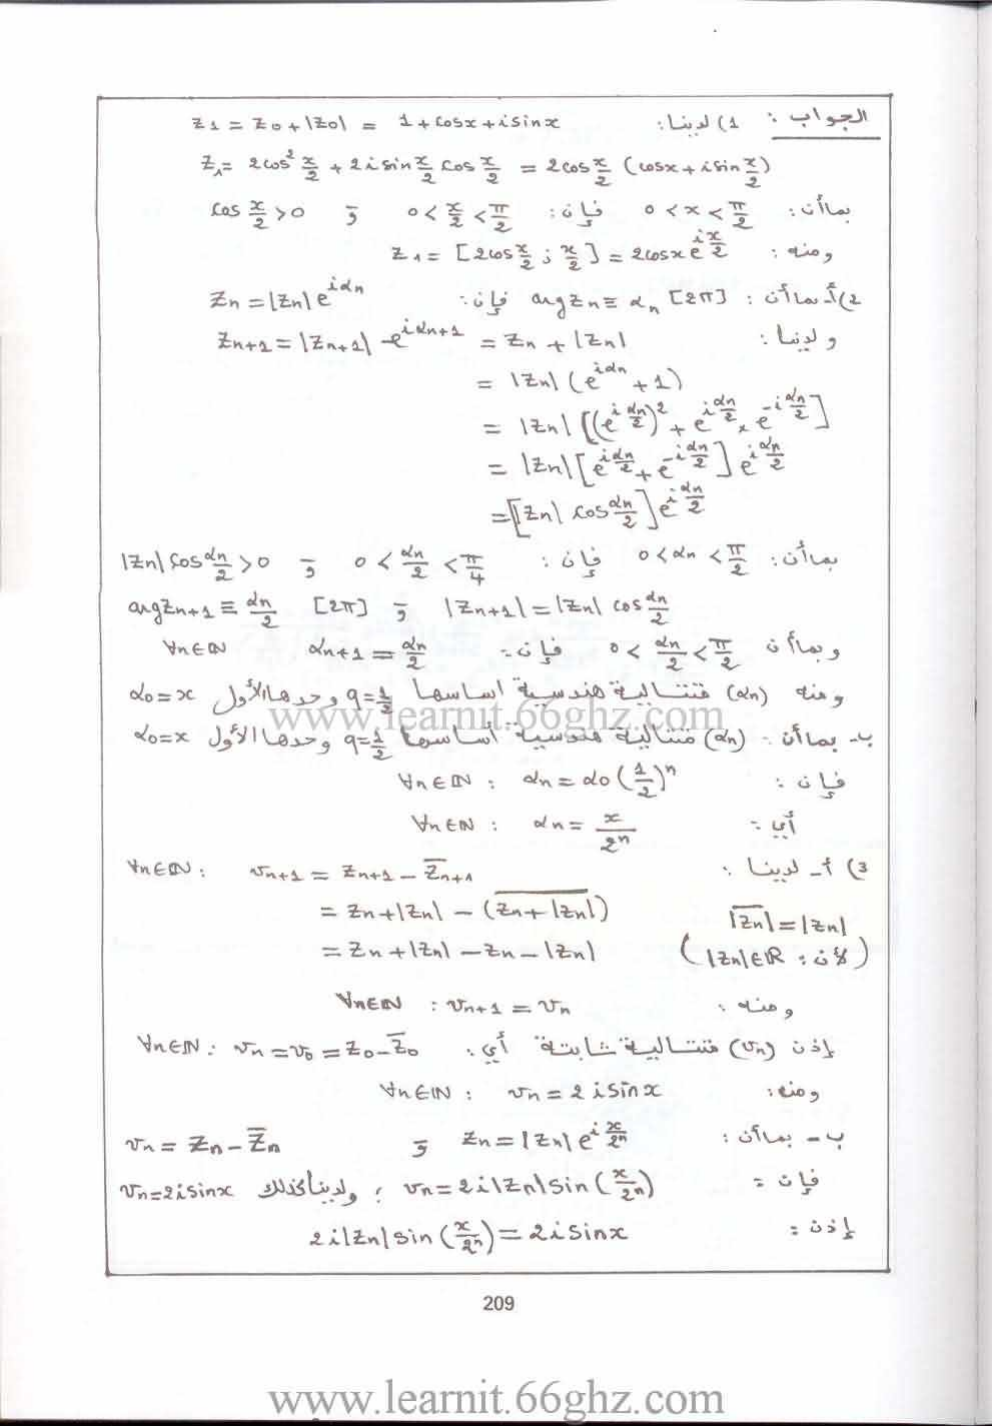 الجواب : 1) لدينا: z₁ = z₀ + |z₀| = 1 + cosx + isinx
z₁ = 2cos² x/2 + 2isin x/2 cos x/2 = 2cos x/2 (cosx + isin x/2)
بما أن: 0 < x < π/2 فإن: 0 < x/2 < π/2 و cos x/2 > 0
ومنه: z₁ = [2cos x/2 ; x/2] = 2cosx e^{i x/2}
2) أ- بما أن: argzₙ ≡ αₙ [2π] فإن: zₙ = |zₙ| e^{iαₙ}
ولدينا: zₙ₊₁ = |zₙ₊₁| e^{iαₙ₊₁} = zₙ + |zₙ|
= |zₙ| (e^{iαₙ} + 1)
= |zₙ| [(e^{i αₙ/2})² + e^{i αₙ/2} × e^{-i αₙ/2}]
= |zₙ| [e^{i αₙ/2} + e^{-i αₙ/2}] e^{i αₙ/2}
= [|zₙ| cos αₙ/2] e^{i αₙ/2}
بما أن: 0 < αₙ < π/2 فإن: 0 < αₙ/2 < π/4 و |zₙ| cos αₙ/2 > 0
|zₙ₊₁| = |zₙ| cos αₙ/2 و argzₙ₊₁ ≡ αₙ/2 [2π]
وبما أن 0 < αₙ/2 < π/2 فإن: αₙ₊₁ = αₙ/2 ∀n∈ℕ
ومنه (αₙ) متتالية هندسية أساسها q = 1/2 وحدها الأول α₀ = x
www.learnit.66ghz.com
ب- بما أن: (αₙ) متتالية هندسية أساسها q = 1/2 وحدها الأول α₀ = x
فإن: ∀n∈ℕ : αₙ = α₀ (1/2)ⁿ
أي: ∀n∈ℕ : αₙ = x/2ⁿ
3) أ- لدينا: ∀n∈ℕ : vₙ₊₁ = zₙ₊₁ − z̅ₙ₊₁
= zₙ + |zₙ| − (\overline{zₙ + |zₙ|}) \overline{|zₙ|} = |zₙ|
= zₙ + |zₙ| − zₙ − |zₙ| (لأن: |zₙ| ∈ ℝ)
ومنه: ∀n∈ℕ : vₙ₊₁ = vₙ
إذن (vₙ) متتالية ثابتة أي: ∀n∈ℕ : vₙ = v₀ = z₀ − z̅₀
ومنه: ∀n∈ℕ : vₙ = 2isinx
ب- بما أن: zₙ = |zₙ| e^{i x/2ⁿ} و vₙ = zₙ − z̅ₙ
فإن: vₙ = 2i|zₙ| sin(x/2ⁿ) ؛ ولدينا كذلك vₙ = 2isinx
إذن: 2i|zₙ| sin(x/2ⁿ) = 2isinx
209
www.learnit.66ghz.com